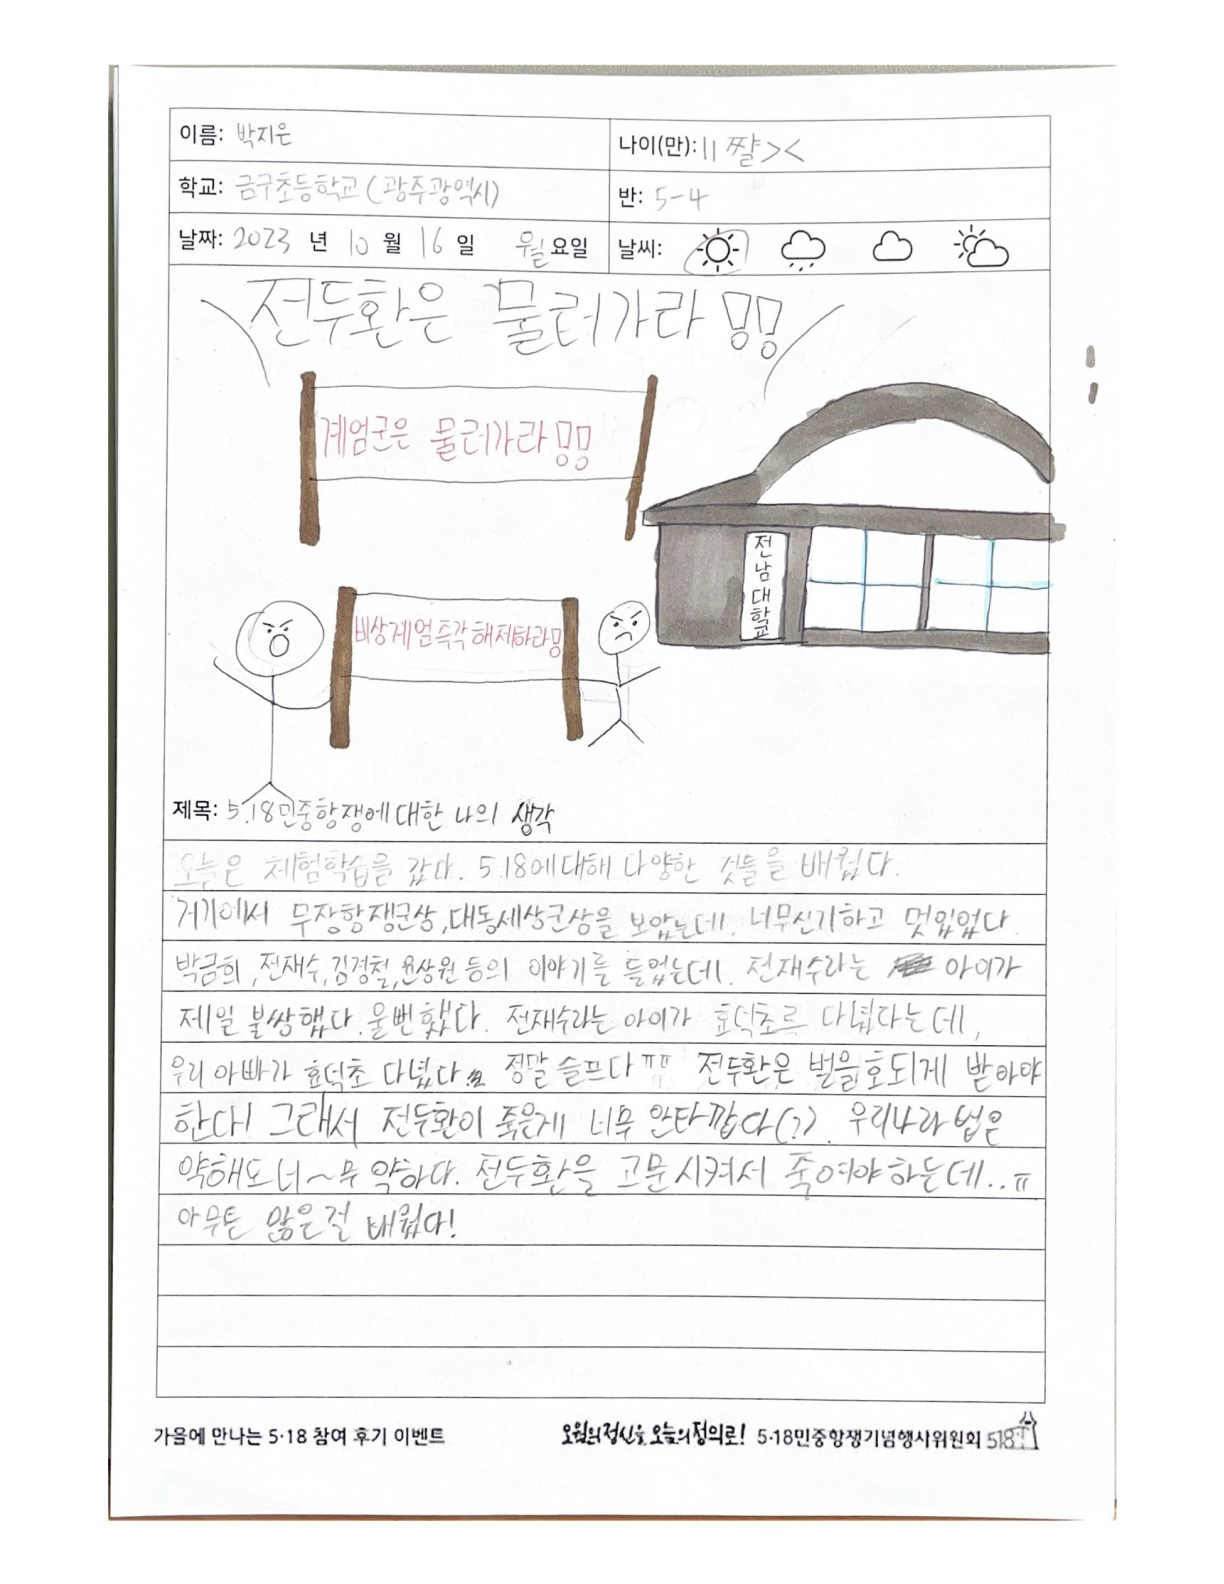 이름: 박지은
나이(만): 11 짤><
학교: 금구초등학교(광주광역시)
반: 5-4
날짜: 2023 년 10 월 16 일 월요일
날씨:
전두환은 물러가라!!
계엄군은 물러가라!!
전남대학교
비상계엄즉각해제하라!
제목: 5.18민중항쟁에대한 나의 생각
오늘은 체험학습을 갔다. 5.18에대해 다양한 것들을 배웠다.
거기에서 무장항쟁군상, 대동세상군상을 보았는데. 너무신기하고 멋있었다
박금희, 전재수, 김경철, 윤상원 등의 이야기를 들었는데. 전재수라는 아이가
제일 불쌍했다. 울뻔했다. 전재수라는 아이가 효덕초르 다녔다는데,
우리 아빠가 효덕초 다녔다 정말 슬프다ㅠㅠ 전두환은 벌을호되게 받아야
한다! 그래서 전두환이 죽은게 너무 안타깝다(?). 우리나라 법은
약해도 너~무 약하다. 전두환을 고문시켜서 죽여야하는데..ㅠ
아무튼 많은걸 배웠다!
가을에 만나는 5·18 참여 후기 이벤트
오월의정신을 오늘의정의로! 5·18민중항쟁기념행사위원회 518